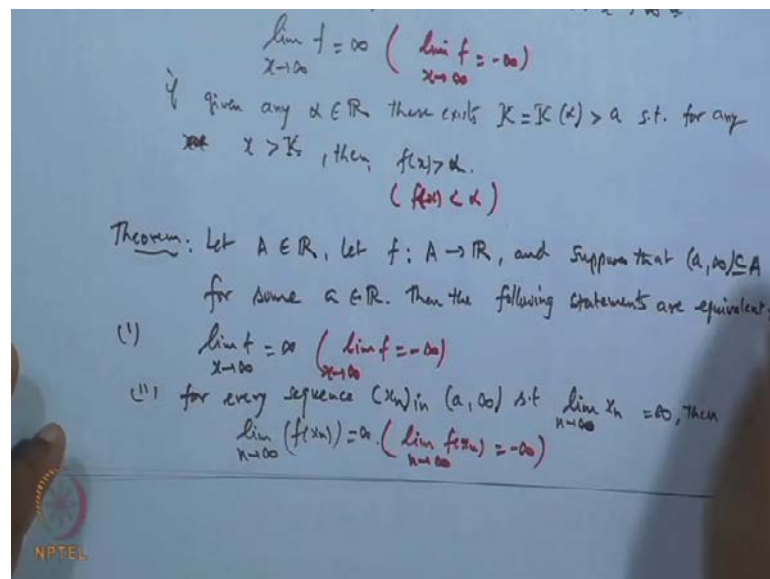 lim f = ∞ ( lim f = -∞)
x→∞ x→∞
if given any α ∈ ℝ there exists K = K(α) > a s.t. for any
x > K, then, f(x) > α.
(f(x) < α)
Theorem: Let A ∈ ℝ, let f : A → ℝ, and suppose that (a, ∞) ⊆ A
for some a ∈ ℝ. Then the following statements are equivalent:
(i) lim f = ∞ ( lim f = -∞)
x→∞ x→∞
(ii) for every sequence (xn) in (a, ∞) s.t lim xn = ∞, then
n→∞
lim (f(xn)) = ∞ ( lim f(xn) = -∞)
n→∞ n→∞
NPTEL